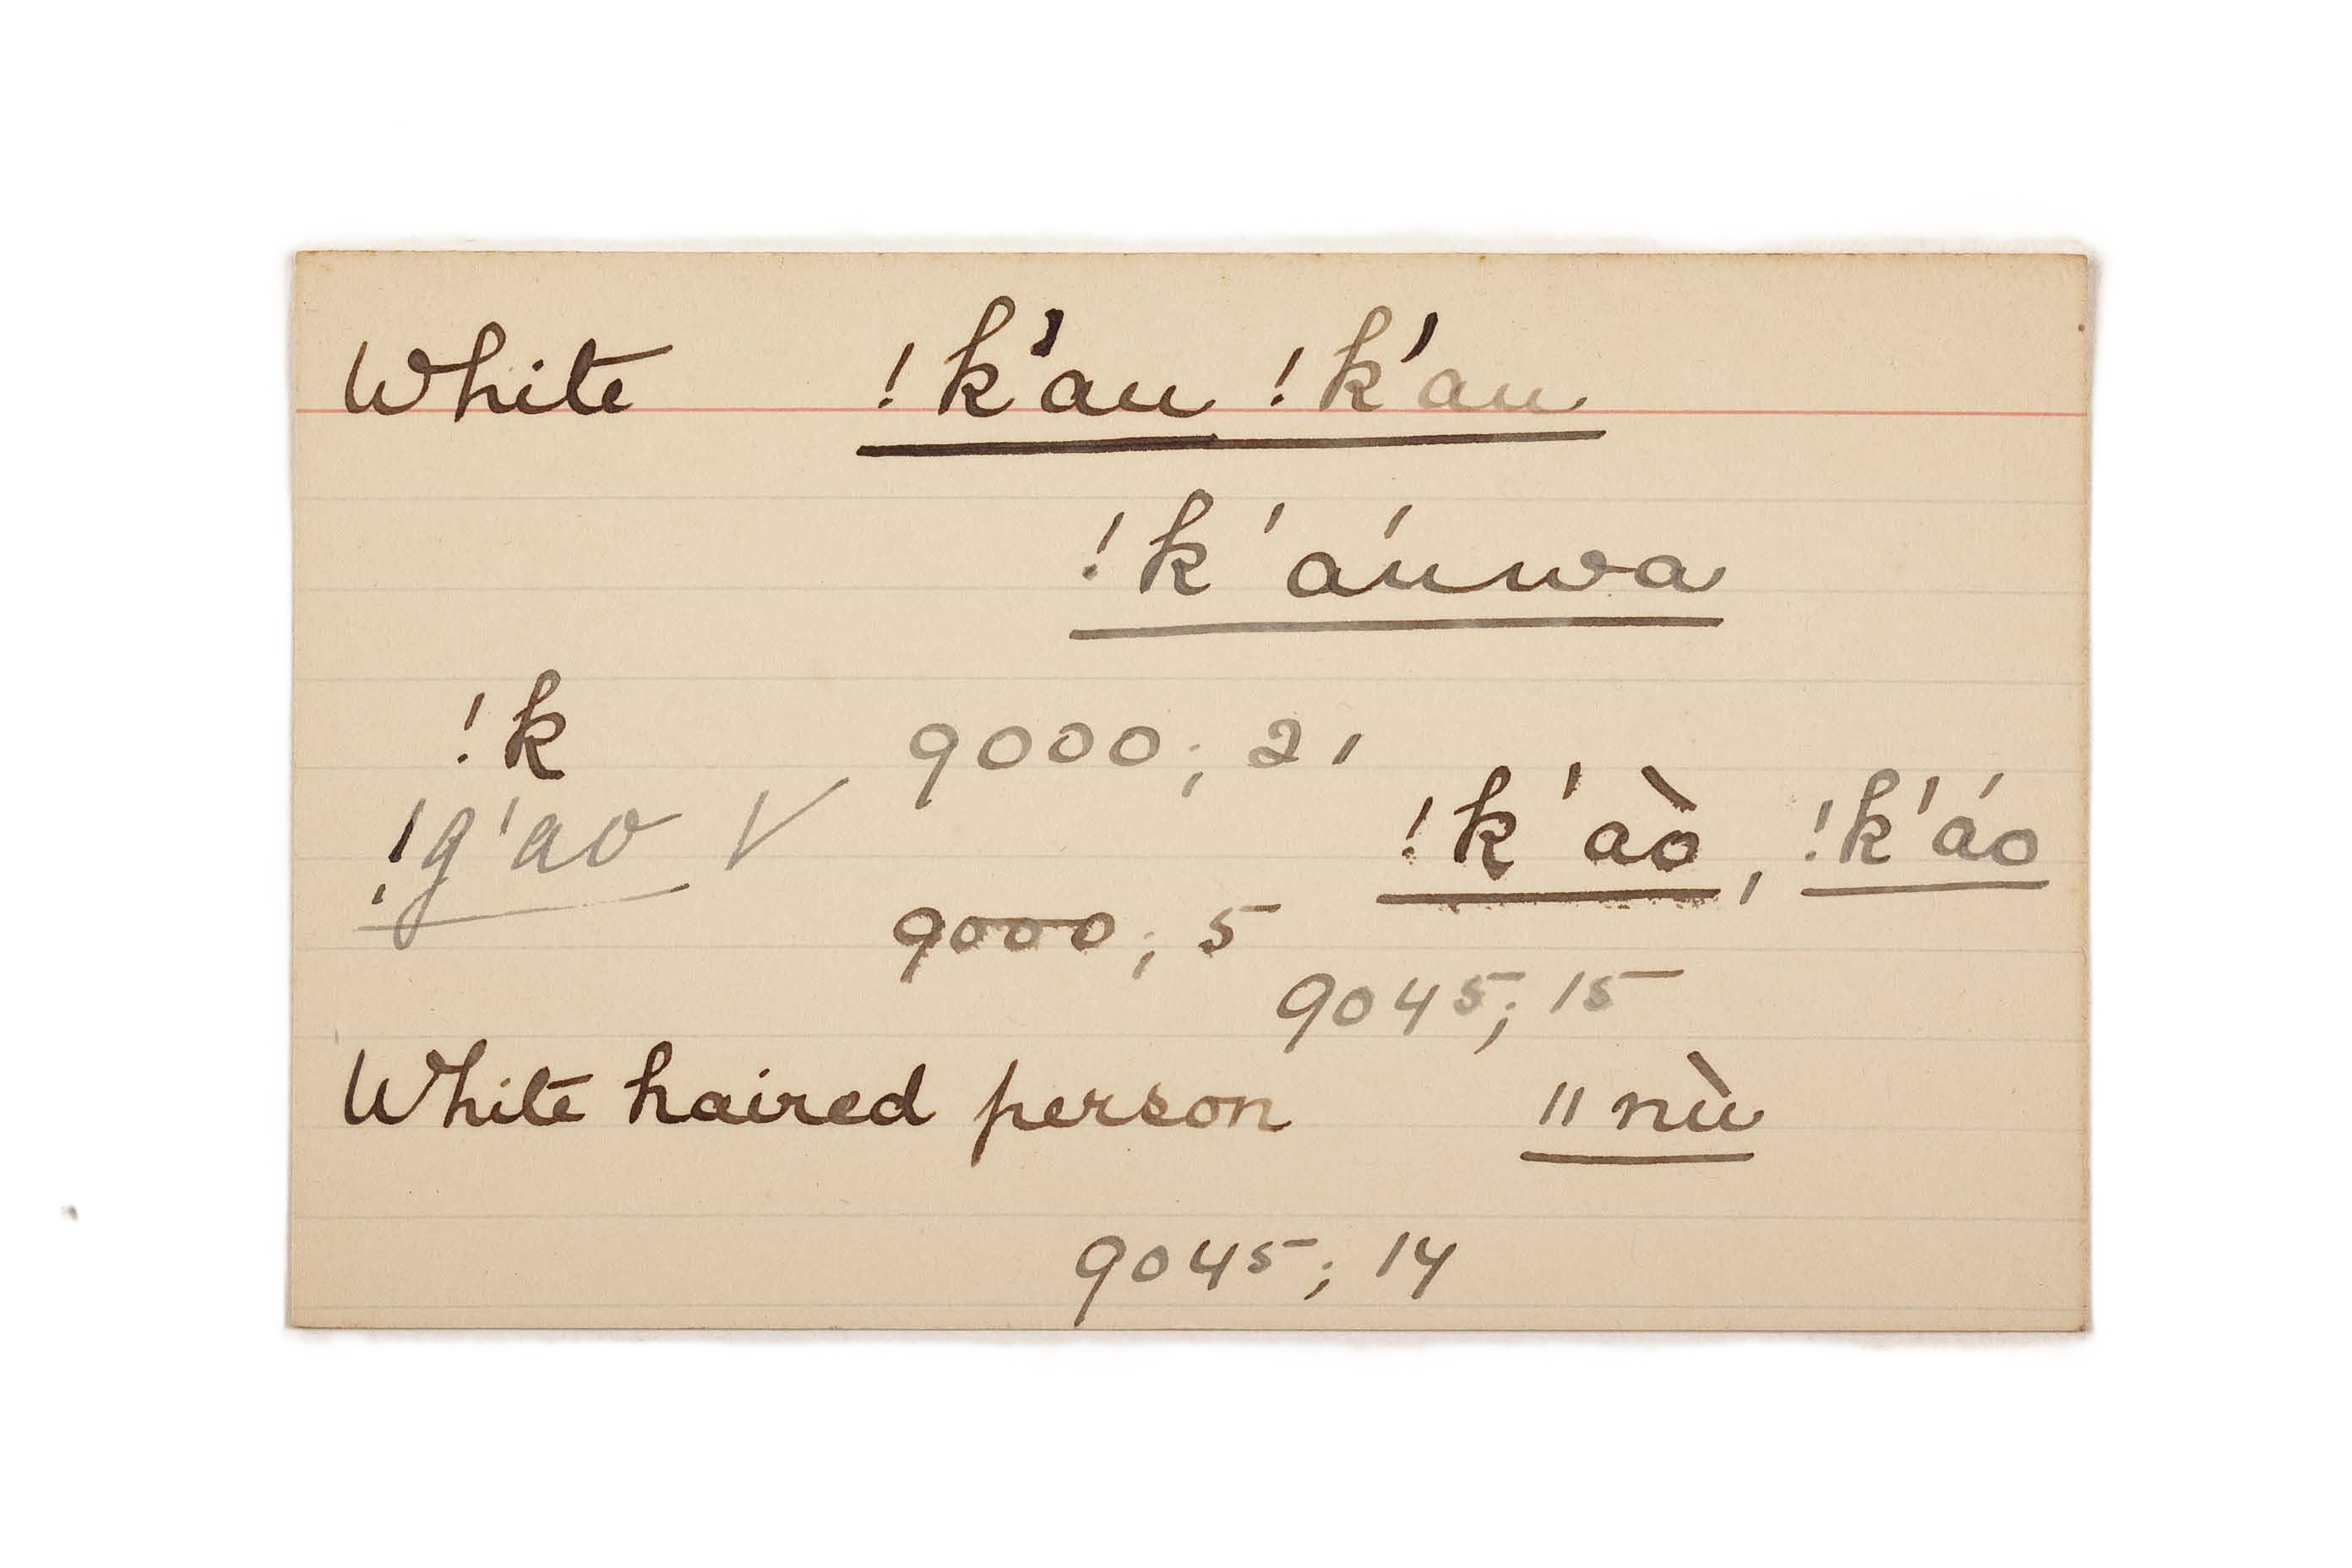 White !k'au !k'au
!k'áuwa
!k 9000; 21
!g'ao √ !k'aò, !k'áo
9000; 5
9045; 15
White haired person ‖nù
9045; 14